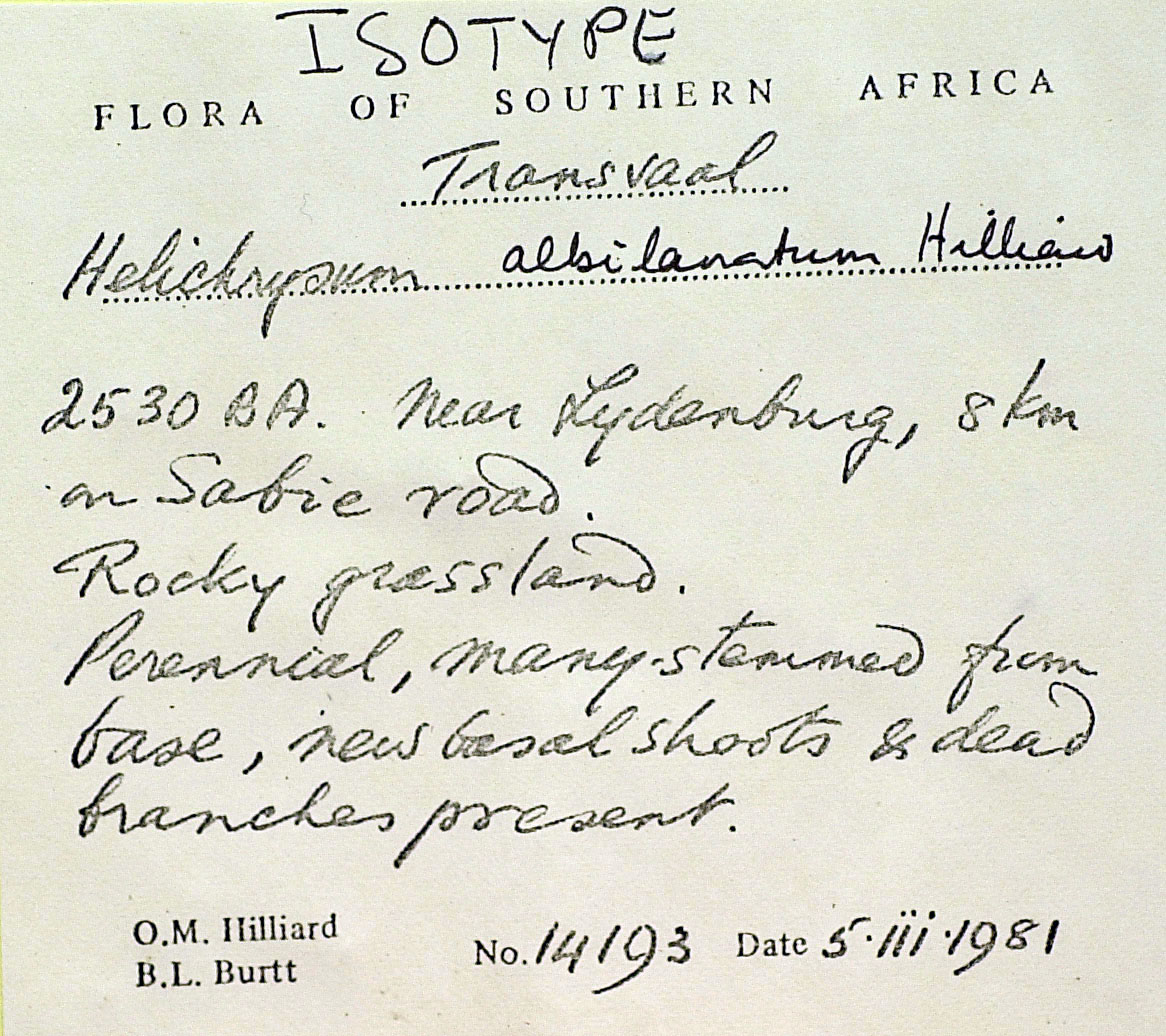 ISOTYPE
FLORA OF SOUTHERN AFRICA
Transvaal
Helichrysum albilanatum Hilliard
2530 BA. Near Lydenburg, 8 km
on Sabie road.
Rocky grassland.
Perennial, many-stemmed from
base, new basal shoots & dead
branches present.
O.M. Hilliard
B.L. Burtt
No. 14193 Date 5·iii·1981